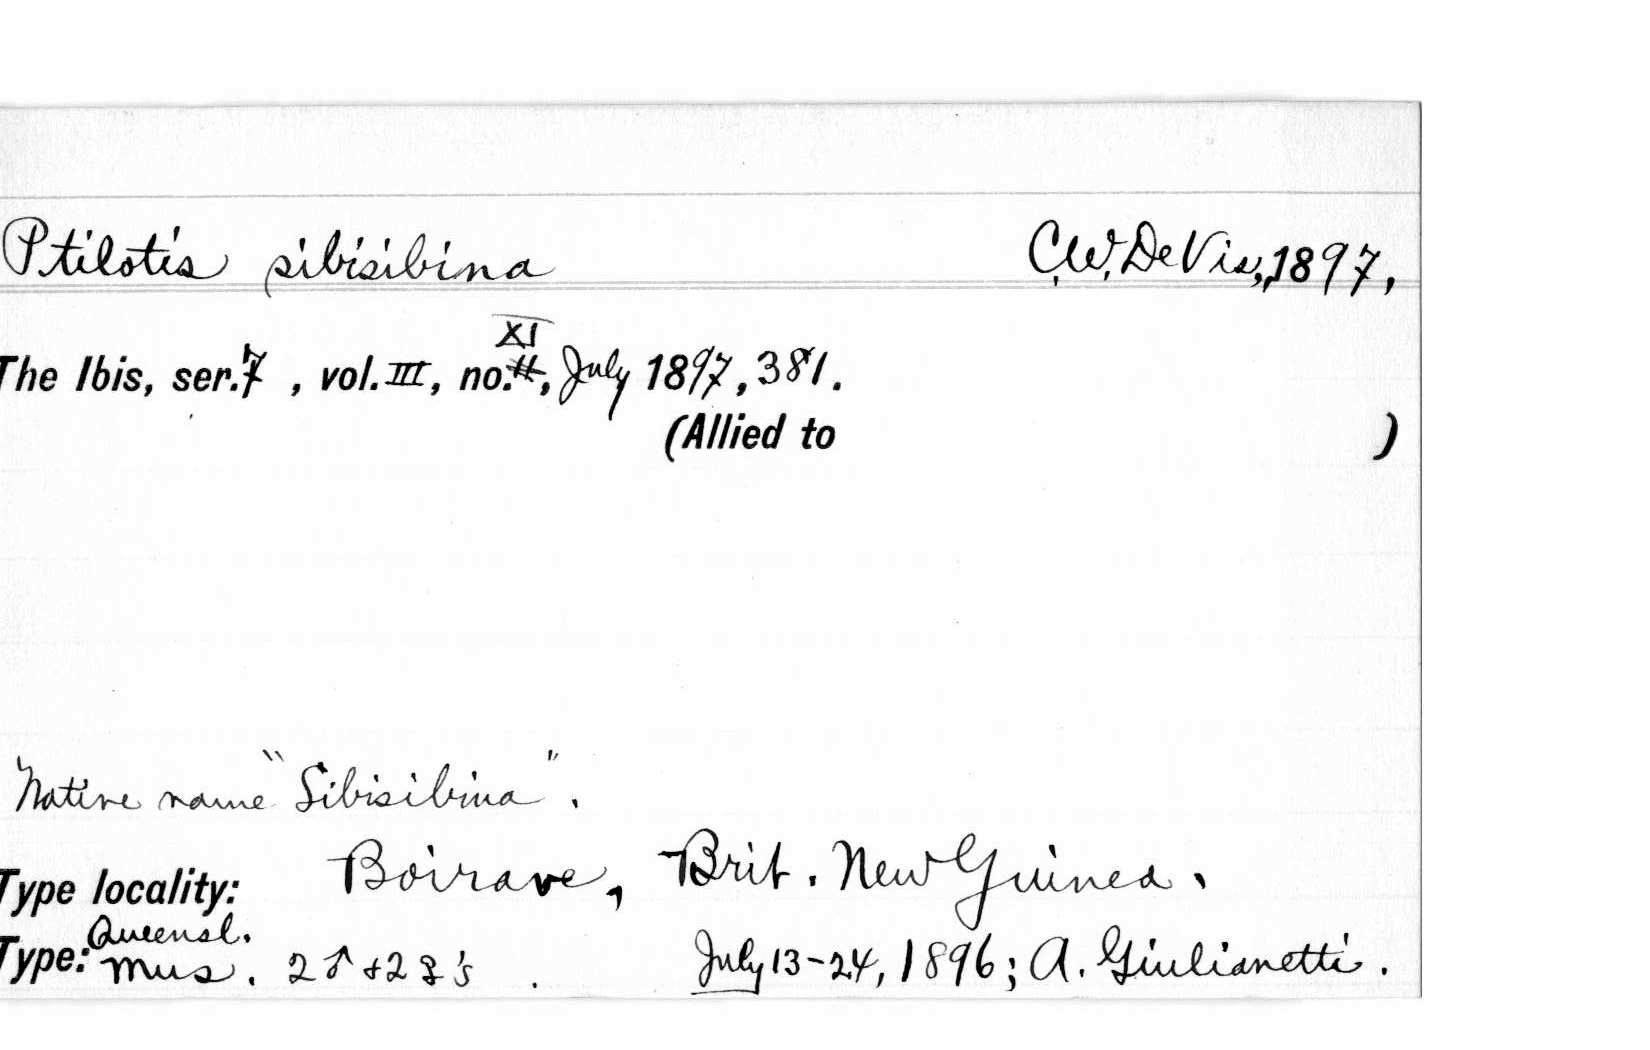 Ptilotis sibisibina C.W. De Vis, 1897,
XI
The Ibis, ser. 7, vol. III, no. #, July 1897, 381.
(Allied to )
Native name "Sibisibina".
Type locality: Boirave, Brit. New Guinea.
Queensl.
Type: Mus. 2♂+2♀'s. July 13-24, 1896; A. Giulianetti.